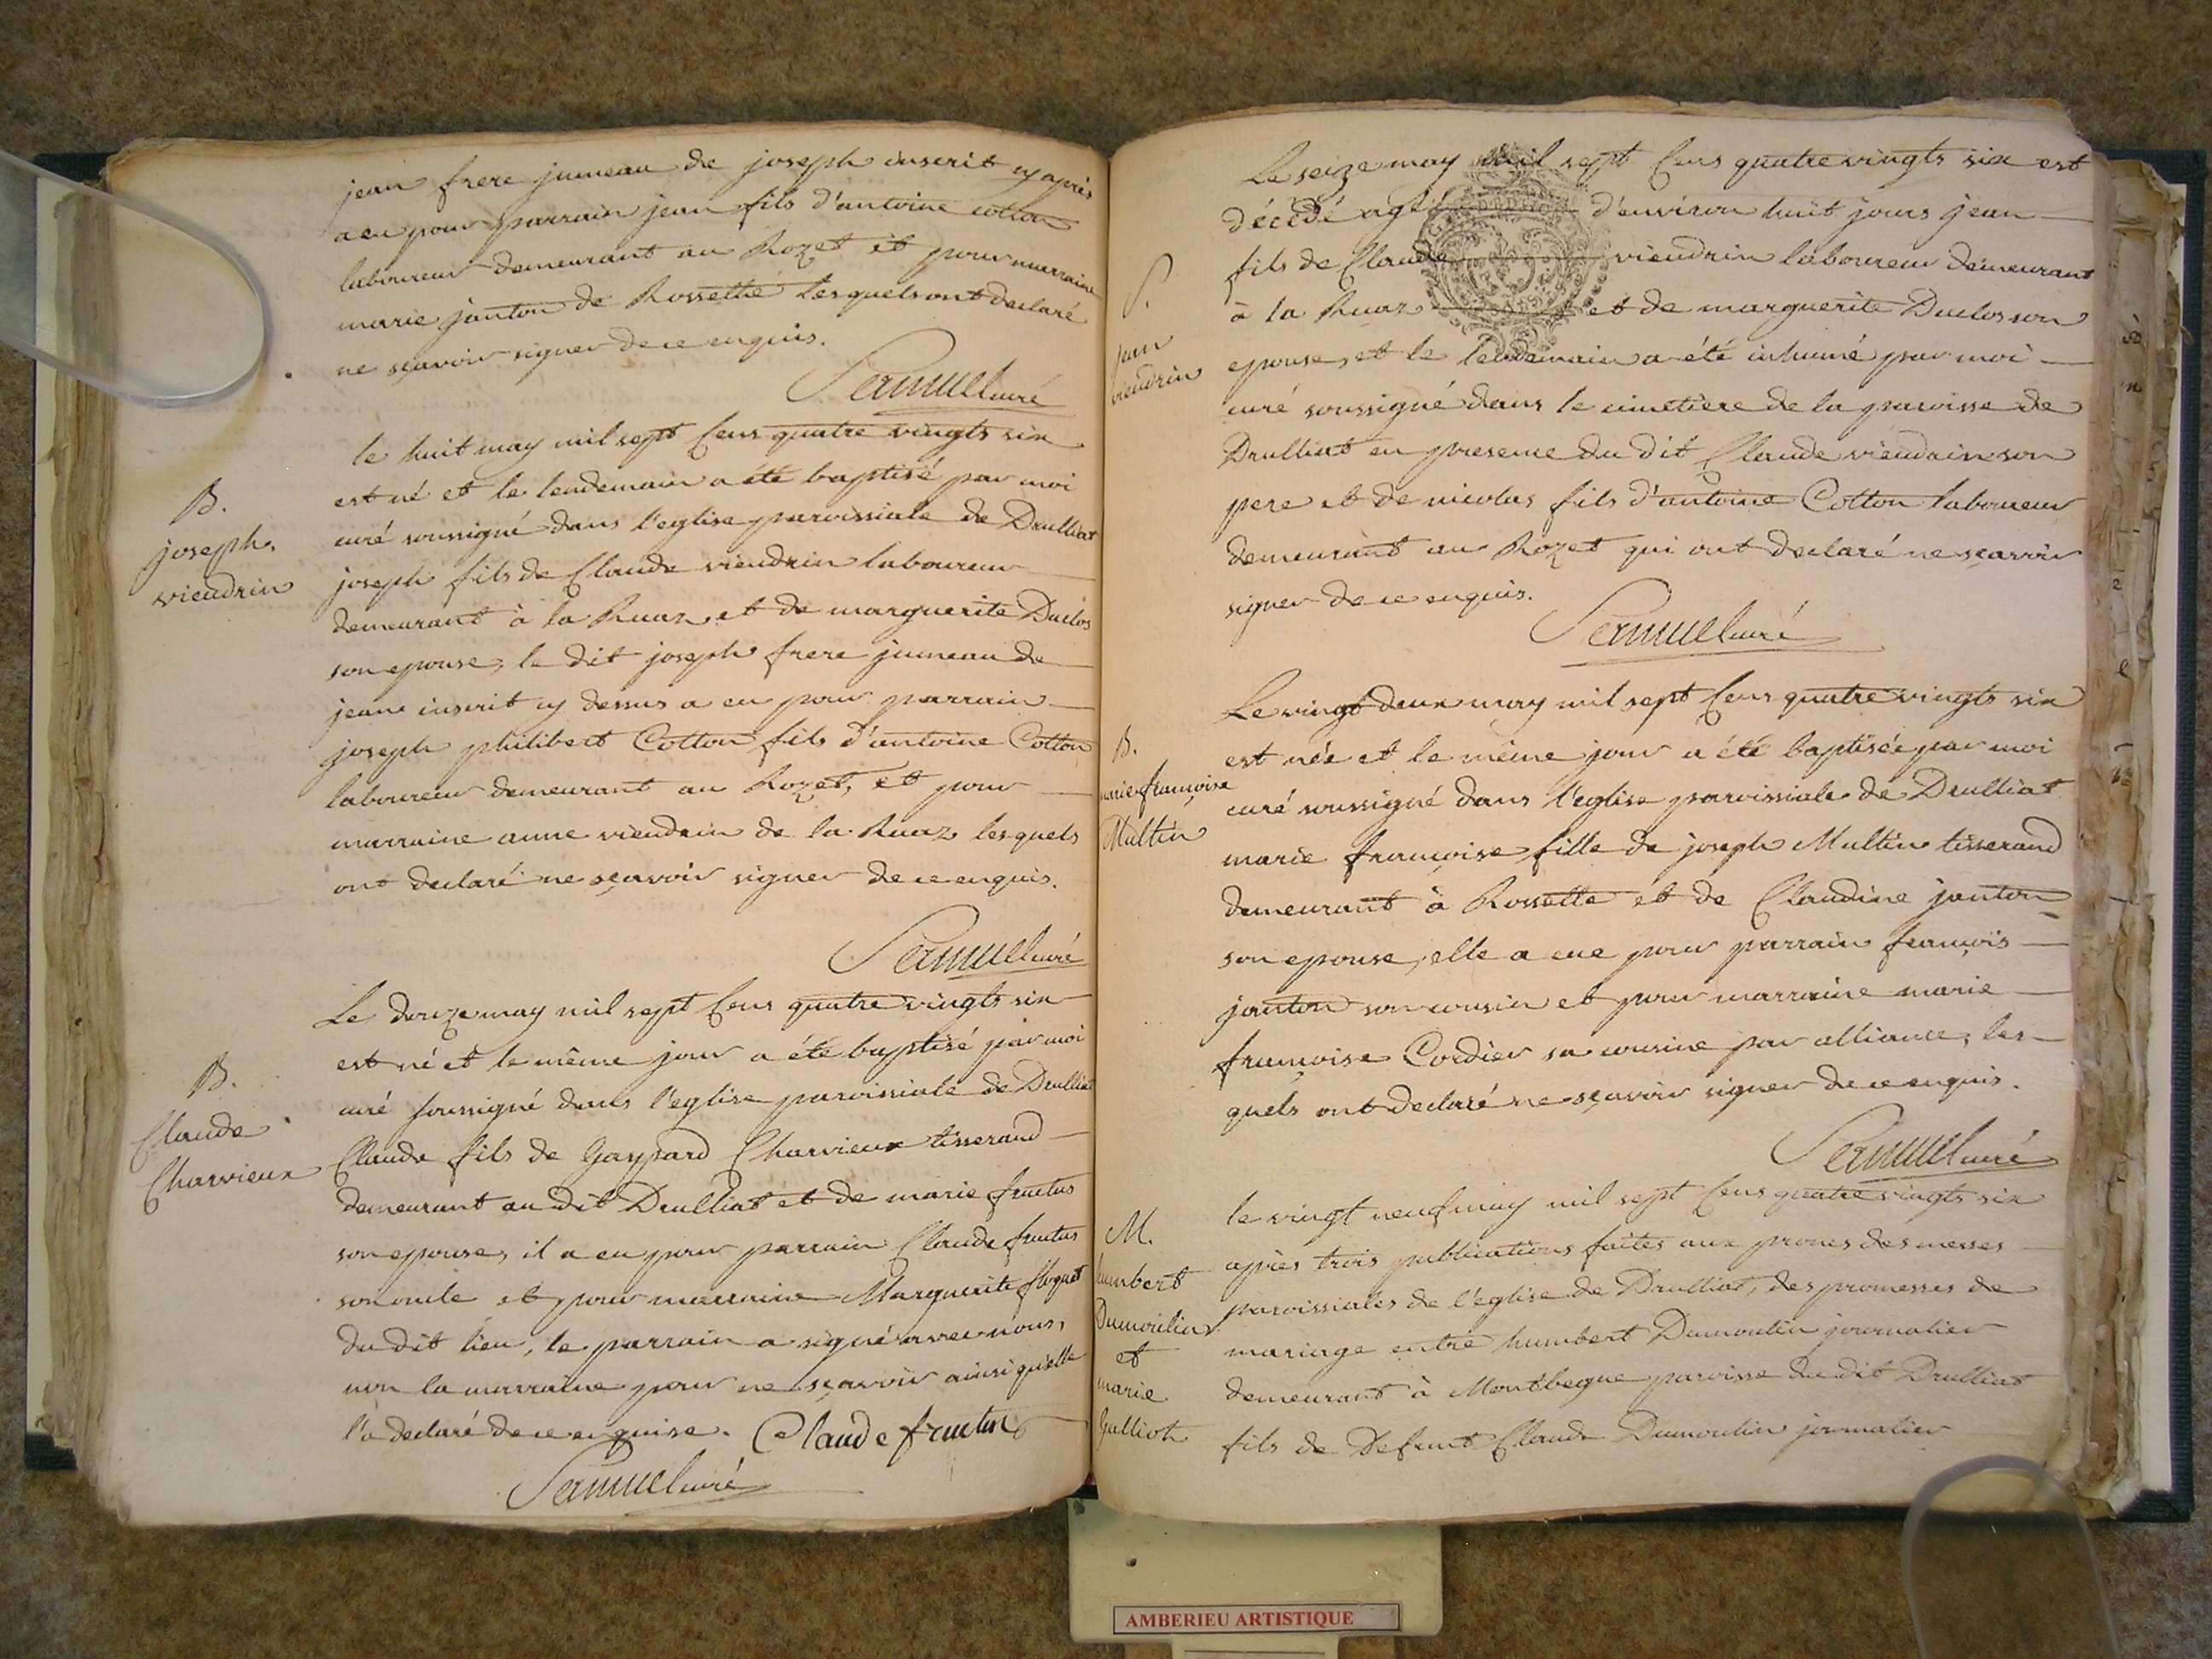 jean frere jumeau de joseph inscrit cy après
a eu pour parrain jean fils d'antoine cotton
laboureur demeurant au Rozet et pour marraine
marie janton de Rossette lesquels ont declaré
ne sçavoir signer de ce enquis.
curé
B.
joseph
viendrin
le huit may mil sept Cens quatre vingts six
est né et le lendemain a été baptisé par moi
curé soussigné dans l'eglise paroissiale de Drulliat
joseph fils de Claude viendrin laboureur
demeurant à la Ruaz et de marguerite Duclos
son epouse, le dit joseph frere jumeau de
jean inscrit cy dessus a eu pour parrain
joseph philibert Cotton fils d'antoine Cotton
laboureur demeurant au Rozet, et pour
marraine anne viendrin de la Ruaz lesquels
ont declaré ne sçavoir signer de ce enquis.
curé
B.
Claude
Charvieux
Le douze may mil sept Cens quatre vingts six
est né et le même jour a été baptisé par moi
curé soussigné dans l'eglise paroissiale de Drulliat
Claude fils de Gaspard Charvieux tisserand
demeurant au dit Drulliat et de marie fructus
son epouse, il a eu pour parrain Claude fructus
son oncle et pour marraine Marguerite
du dit lieu, le parrain a signé avec nous,
non la marraine pour ne sçavoir ainsi qu'elle
l'a declaré de ce enquise. Claude fructus
curé
P.
jean
viendrin
Le seize may mil sept Cens quatre vingts six est
décédé agé d'environ huit jours jean
fils de Claude viendrin laboureur demeurant
à la Ruaz et de marguerite Duclos son
epouse, et le lendemain a été inhumé par moi
curé soussigné dans le cimetiere de la paroisse de
Drulliat en presence du dit Claude viendrin son
pere et de nicolas fils d'antoine Cotton laboureur
demeurant au Rozet qui ont declaré ne sçavoir
signer de ce enquis.
curé
B.
marie françoise
Multin
Le vingt deux may mil sept Cens quatre vingts six
est née et le même jour a été baptisée par moi
curé soussigné dans l'eglise paroissiale de Drulliat
marie françoise fille de joseph Multin tisserand
demeurant à Rossette et de Claudine janton
son epouse, elle a eue pour parrain françois
janton son cousin et pour marraine marie
françoise Cordier sa cousine par alliance, les-
quels ont declaré ne sçavoir signer de ce enquis.
curé
M.
humbert
Dumoulin
et
marie
Gulliot
le vingt neuf may mil sept Cens quatre vingts six
après trois publications faites aux prones des messes
paroissiales de l'eglise de Drulliat, des promesses de
mariage entre humbert Dumoulin journalier
demeurant à Montbegue paroisse du dit Drulliat
fils de defunt Claude Dumoulin journalier
AMBERIEU ARTISTIQUE